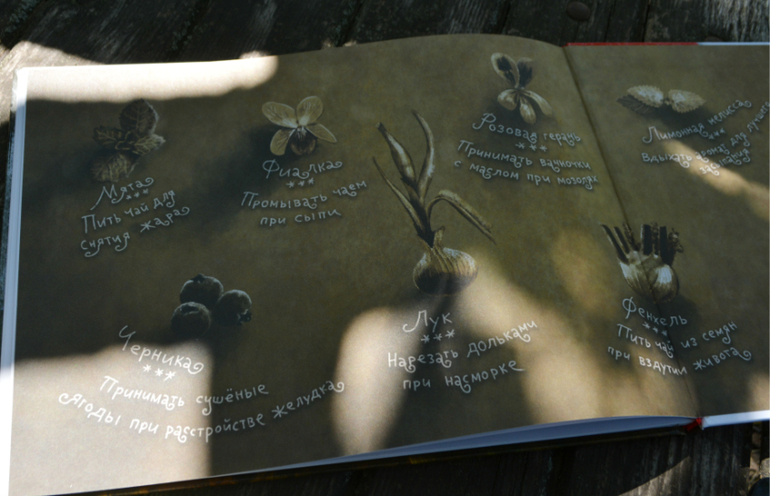 Мята
***
Пить чай для
снятия жара
Фиалка
***
Промывать чаем
при сыпи
Розовая герань
***
Принимать ванночки
с маслом при мозолях
Лимонная мелисса
***
Вдыхать аромат для лучшего
Черника
***
Принимать сушёные
ягоды при расстройстве желудка
Лук
***
Нарезать дольками
при насморке
Фенхель
***
Пить чай из семян
при вздутии живота